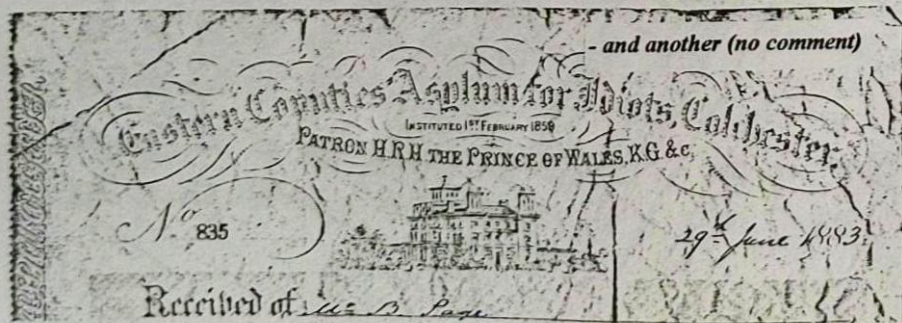 - and another (no comment)
Eastern Counties' Asylum for Idiots, Colchester.
INSTITUTED 1ST FEBRUARY 1859
PATRON H.R.H THE PRINCE OF WALES, K.G. &c,
No 835
29th June 1883.
Received of Mr B Page